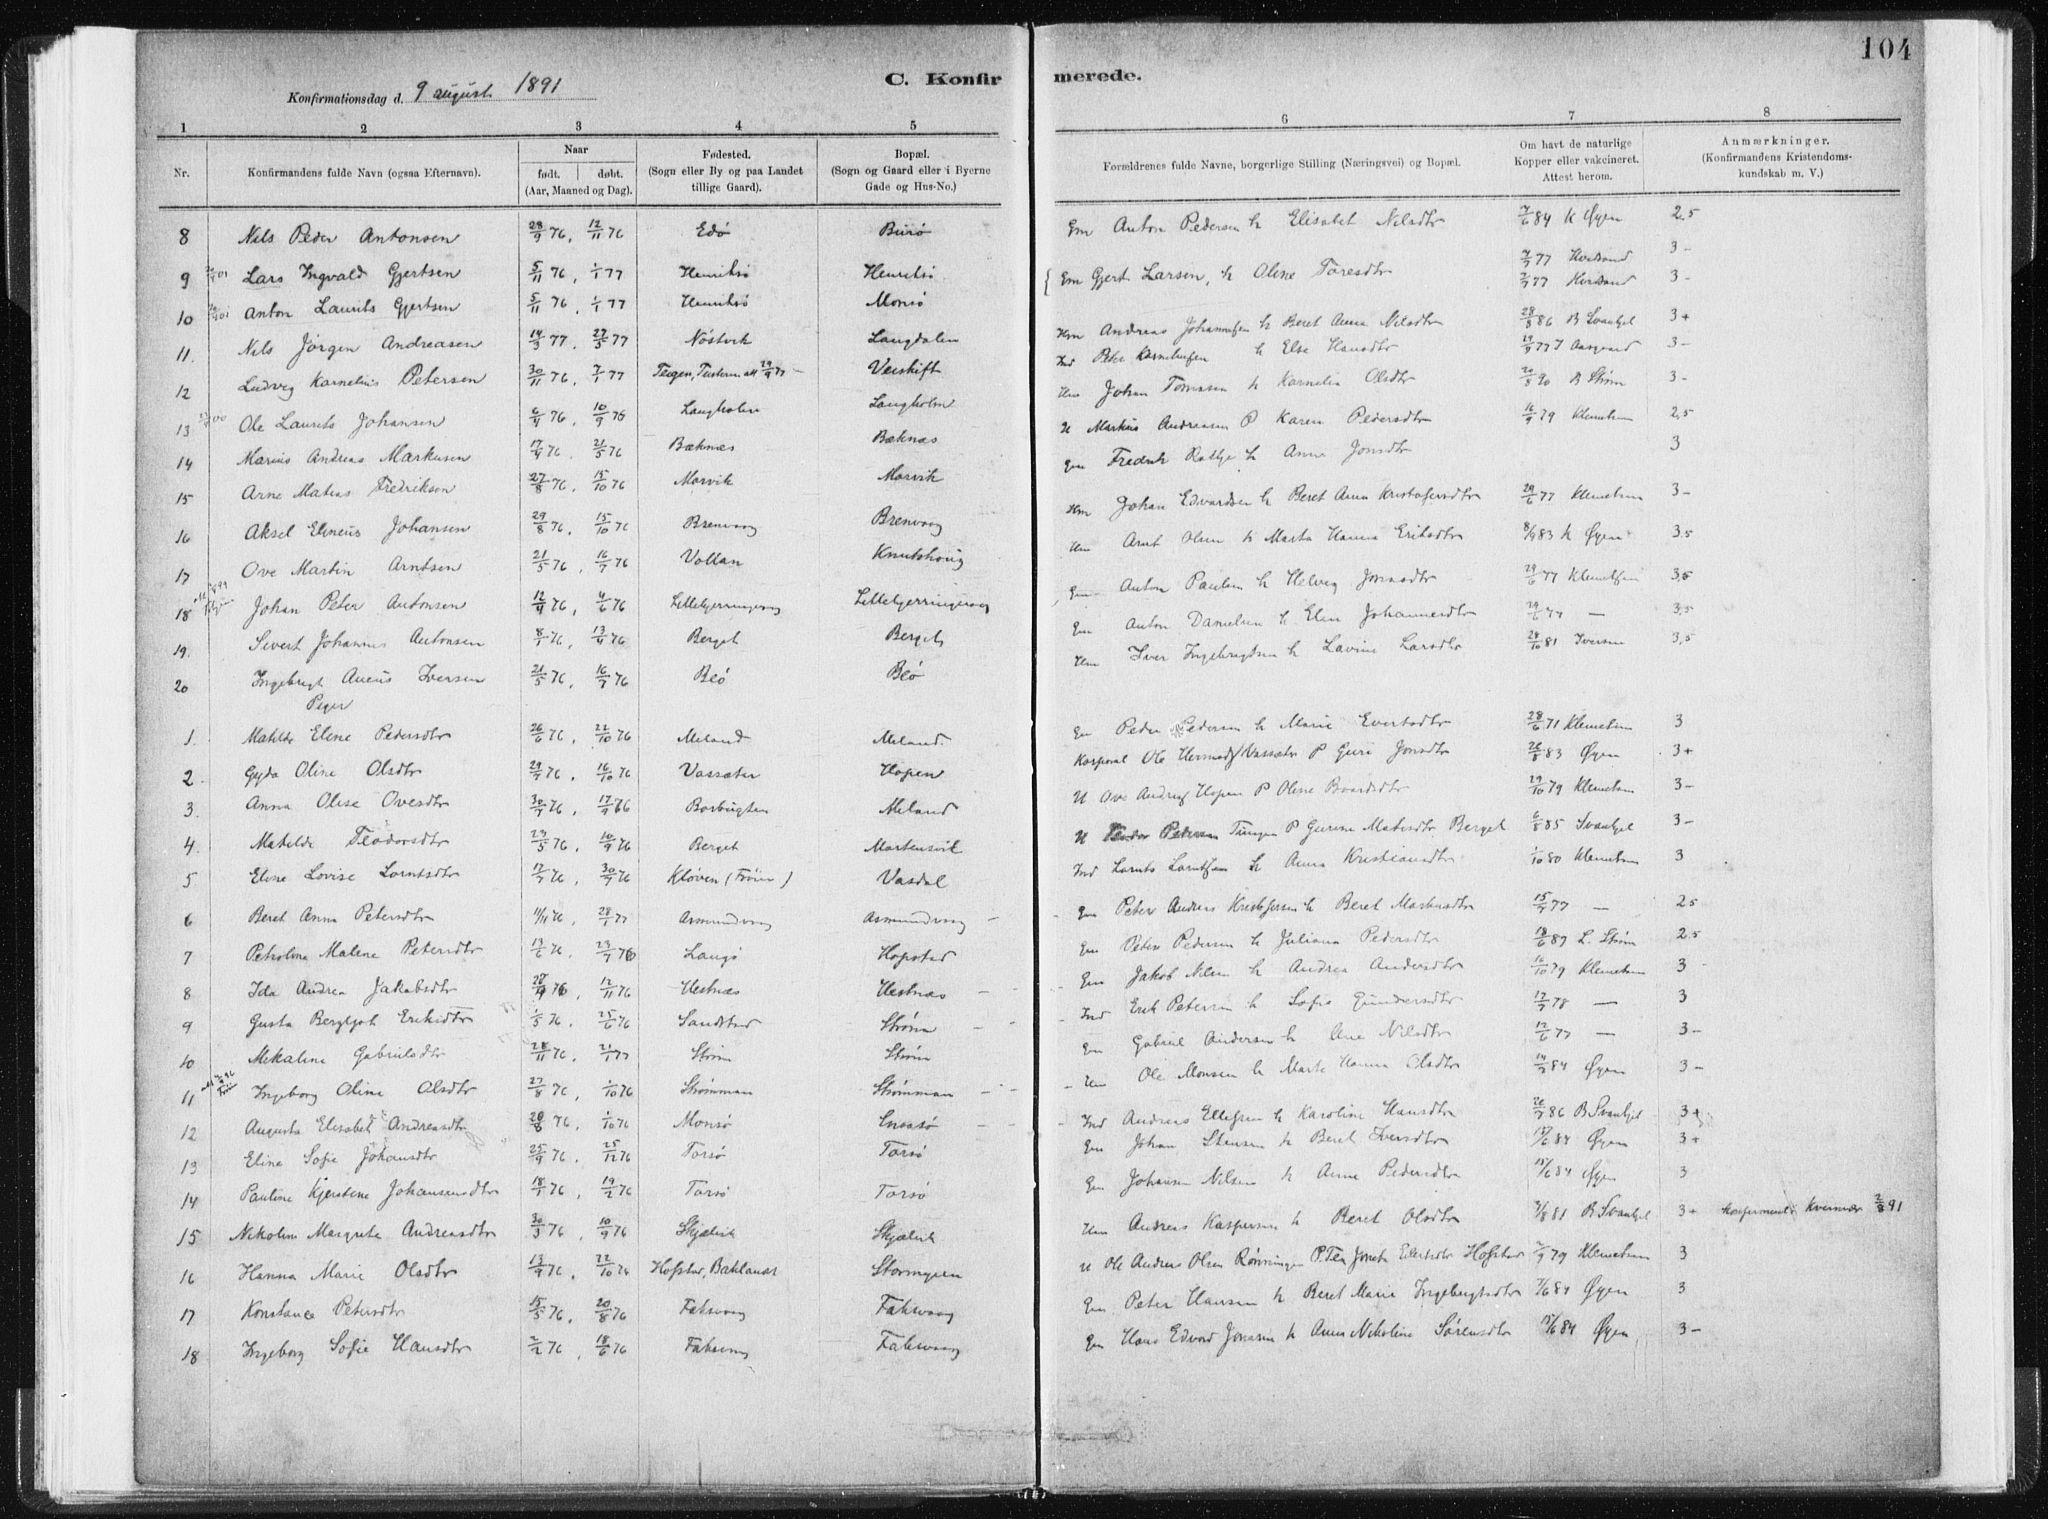 104
C. Konfirmerede.
Konfirmationsdag d. 9 august 1891
1 2 3 4 5 6 7 8
Nr. Konfirmandens fulde Navn (ogsaa Efternavn). Naar født. døbt. (Aar, Maaned og Dag). Fødested. (Sogn eller By og paa Landet tillige Gaard). Bopæl. (Sogn og Gaard eller i Byerne Gade og Hus-No.) Forældrenes fulde Navne, borgerlige Stilling (Næringsvei) og Bopæl. Om havt de naturlige Kopper eller vakcineret. Attest herom. Anmærkninger. (Konfirmandens Kristendomskundskab m. V.)
8 Nils Peder Antonsen 28/9 76, 12/11 76 Edø Burø Em Anton Pedersen h Elisabet Nilsdtr 7/6 84 K Øyen 2,5
9 Lars Ingvald Gjertsen 5/11 76, 1/1 77 Henriksø Henriksø Em Gjert Larsen, h Oline Toresdtr 7/7 77 3-
10 Anton Laurits Gjertsen 5/11 76, 1/1 77 Henriksø Monsø 7/7 77 3-
11. Nils Jörgen Andreasen 14/3 77, 27/5 77 Nöstvik Langdalen Hm Andreas Johannesen h Beret Anna Nilsdtr 28/8 86 B Svanhjel 3+
12 Ludvig Kornelius Petersen 30/11 76, 7/1 77 Veiskift Ind Peter h Else Hansdtr 29/9 77 J Aasgaard 3-
13 Ole Laurits Johansen 6/4 76, 10/9 76 Langholm Langholm Hm Johan Tomasen h Kornelia Olsdtr 20/5 90 B Strøm 3-
14 Marius Andreas Markusen 17/4 76, 21/5 76 Bæknæs Bæknæs U Markus Andreasen P Karen Pedersdtr 16/9 79 Klemetsen 2,5
15 Arne Matias Fredriksen 27/8 76, 15/10 76 Morvik Morvik Em Fredrik h Anne Jonsdtr 3
16 Aksel Elineus Johansen 29/8 76, 15/10 76 Brenvaag Brenvaag Hm Johan Edvardsen h Beret Anna Kristofersdtr 29/6 77 Klemetsen 3-
17 Ove Martin Arntsen 21/5 76, 16/7 76 Vollan Knutshoug Hm Arnt Olsen h Marta Hanna Eriksdtr 8/9 83 K Øyen 3.5
18 Johan Peter Antonsen 12/4 76, 4/6 76 Lillebjerringvaag Lillebjerringvaag Em Anton Paulsen h Helveg Jonsdtr 29/6 77 Klemetsen 3,5
19. Sivert Johannes Antonsen 8/1 76, 13/4 76 Berget Berget Em Anton Danielsen h Elen Johannesdtr 29/6 77 — 3,5
20 Ingebrigt Aneus Iversen 21/5 76, 16/7 76 Beø Beø Hm Iver Ingebrigtsen h Lavine Larsdtr 28/10 81 Iversen 3,5
Piger
1. Matilde Eline Pedersdtr 26/6 76, 22/10 76 Meland Meland. Em Peder Pedersen h Marie Evertsdtr 28/6 71 Klemetsen 3
2. Gyda Oline Olsdtr 29/7 76, 16/10 76 Vassæter Hopen Korporal Ole Vassæter P Guri Jonsdtr 26/8 83 Øyen 3+
3. Anna Olise Ovesdtr 30/7 76, 17/9 76 Borbugten Meland U Ove Hopen P Oline Baardsdtr 29/10 79 Klemetsen 3-
4. Matilde Teodorsdtr 23/5 76, 10/9 76 Berget Mortensvik U Petersen Tungen P Gurine Matisdtr Berget 6/8 85 Svanhjel 3-
5 Eline Lovise Lorntsdtr 17/7 76, 30/7 76 Kløven (Frøien) Vasdal Ind Lornts Lorntsen h Anna Kristiansdtr 1/10 80 Klemetsen 3
6 Beret Anna Petersdtr 11/11 76, 28/1 77 Asmundvaag Asmundvaag Em Peter Andreas Kristofersen h Beret Markusdtr 15/7 77 — 2.5
7 Petroline Malene Petersdtr 13/6 76, 23/7 76 Langø Hopstad Em Peter Pedersen h Juliana Pedersdtr 18/6 89 L. Strøm 2.5
8 Ida Andrea Jakobsdtr 12/11 76 Hestnæs Hestnæs Em Jakob Nilsen h Andrea Andersdtr 16/10 79 Klemetsen 3
9 Gusta Bergljot Eriksdtr 1/5 76, 25/6 76 Sandstad Strøm Ind Erik Petersen h Sofie Gundersdtr 17/7 78 — 3
10 Mekaline Gabrielsdtr 28/11 76, 21/1 77 Strøm Strøm Em Gabriel Andersen h Ane Nilsdtr 12/6 77 — 3-
11 Ingeborg Oline Olsdtr 27/8 76, 1/10 76 Strømman Strømman Hm Ole Monsen h Marta Hanna Olsdtr 14/7 84 Øyen 3-
12 Augusta Elisabet Andreasdtr 76, 1/10 76 Monsø Ind Andreas Ellefsen h Karoline Hansdtr 26/7 86 B Svanhjel 3+
13 Eline Sofie Johansdtr 25/9 76, 25/12 76 Torsø Torsø Em Johan Stensen h Beret Iversdtr 17/6 84 Øyen 3+
14 Pauline Kjerstine Johansensdtr 18/1 76, 19/2 76 Torsø Torsø Em Johansen Nilsen h Anne Pedersdtr 15/6 84 Øyen 3
15 Nikoline Margrete Andreasdtr 30/3 76, 10/9 76 Skjælvik Skjælvik Hm Andreas Kaspersen h Beret Olsdtr 7/8 81 B Svanhjel 3+ konfirmeret i Kvernvær 2/8 91
16 Hanna Marie Olsdtr 13/9 76, 22/10 76 Hofstad, Baklandet Stormyren U Ole Andreas Olsen Rønningen P. Edvardsdtr Hofstad 7/9 79 Klemetsen 3
17 Konstance Petersdtr 15/5 76, 20/8 76 Faksvaag Faksvaag Em Peter Hansen h Beret Marie Ingebrigtsdtr 7/6 84 Øyen 3
18 Ingeborg Sofie Hansdtr 2/2 76, 18/6 76 Faksvaag Faksvaag Em Hans Edvard Jonasen h Anna Nikoline Sørensdtr 15/6 84 Øyen 3-